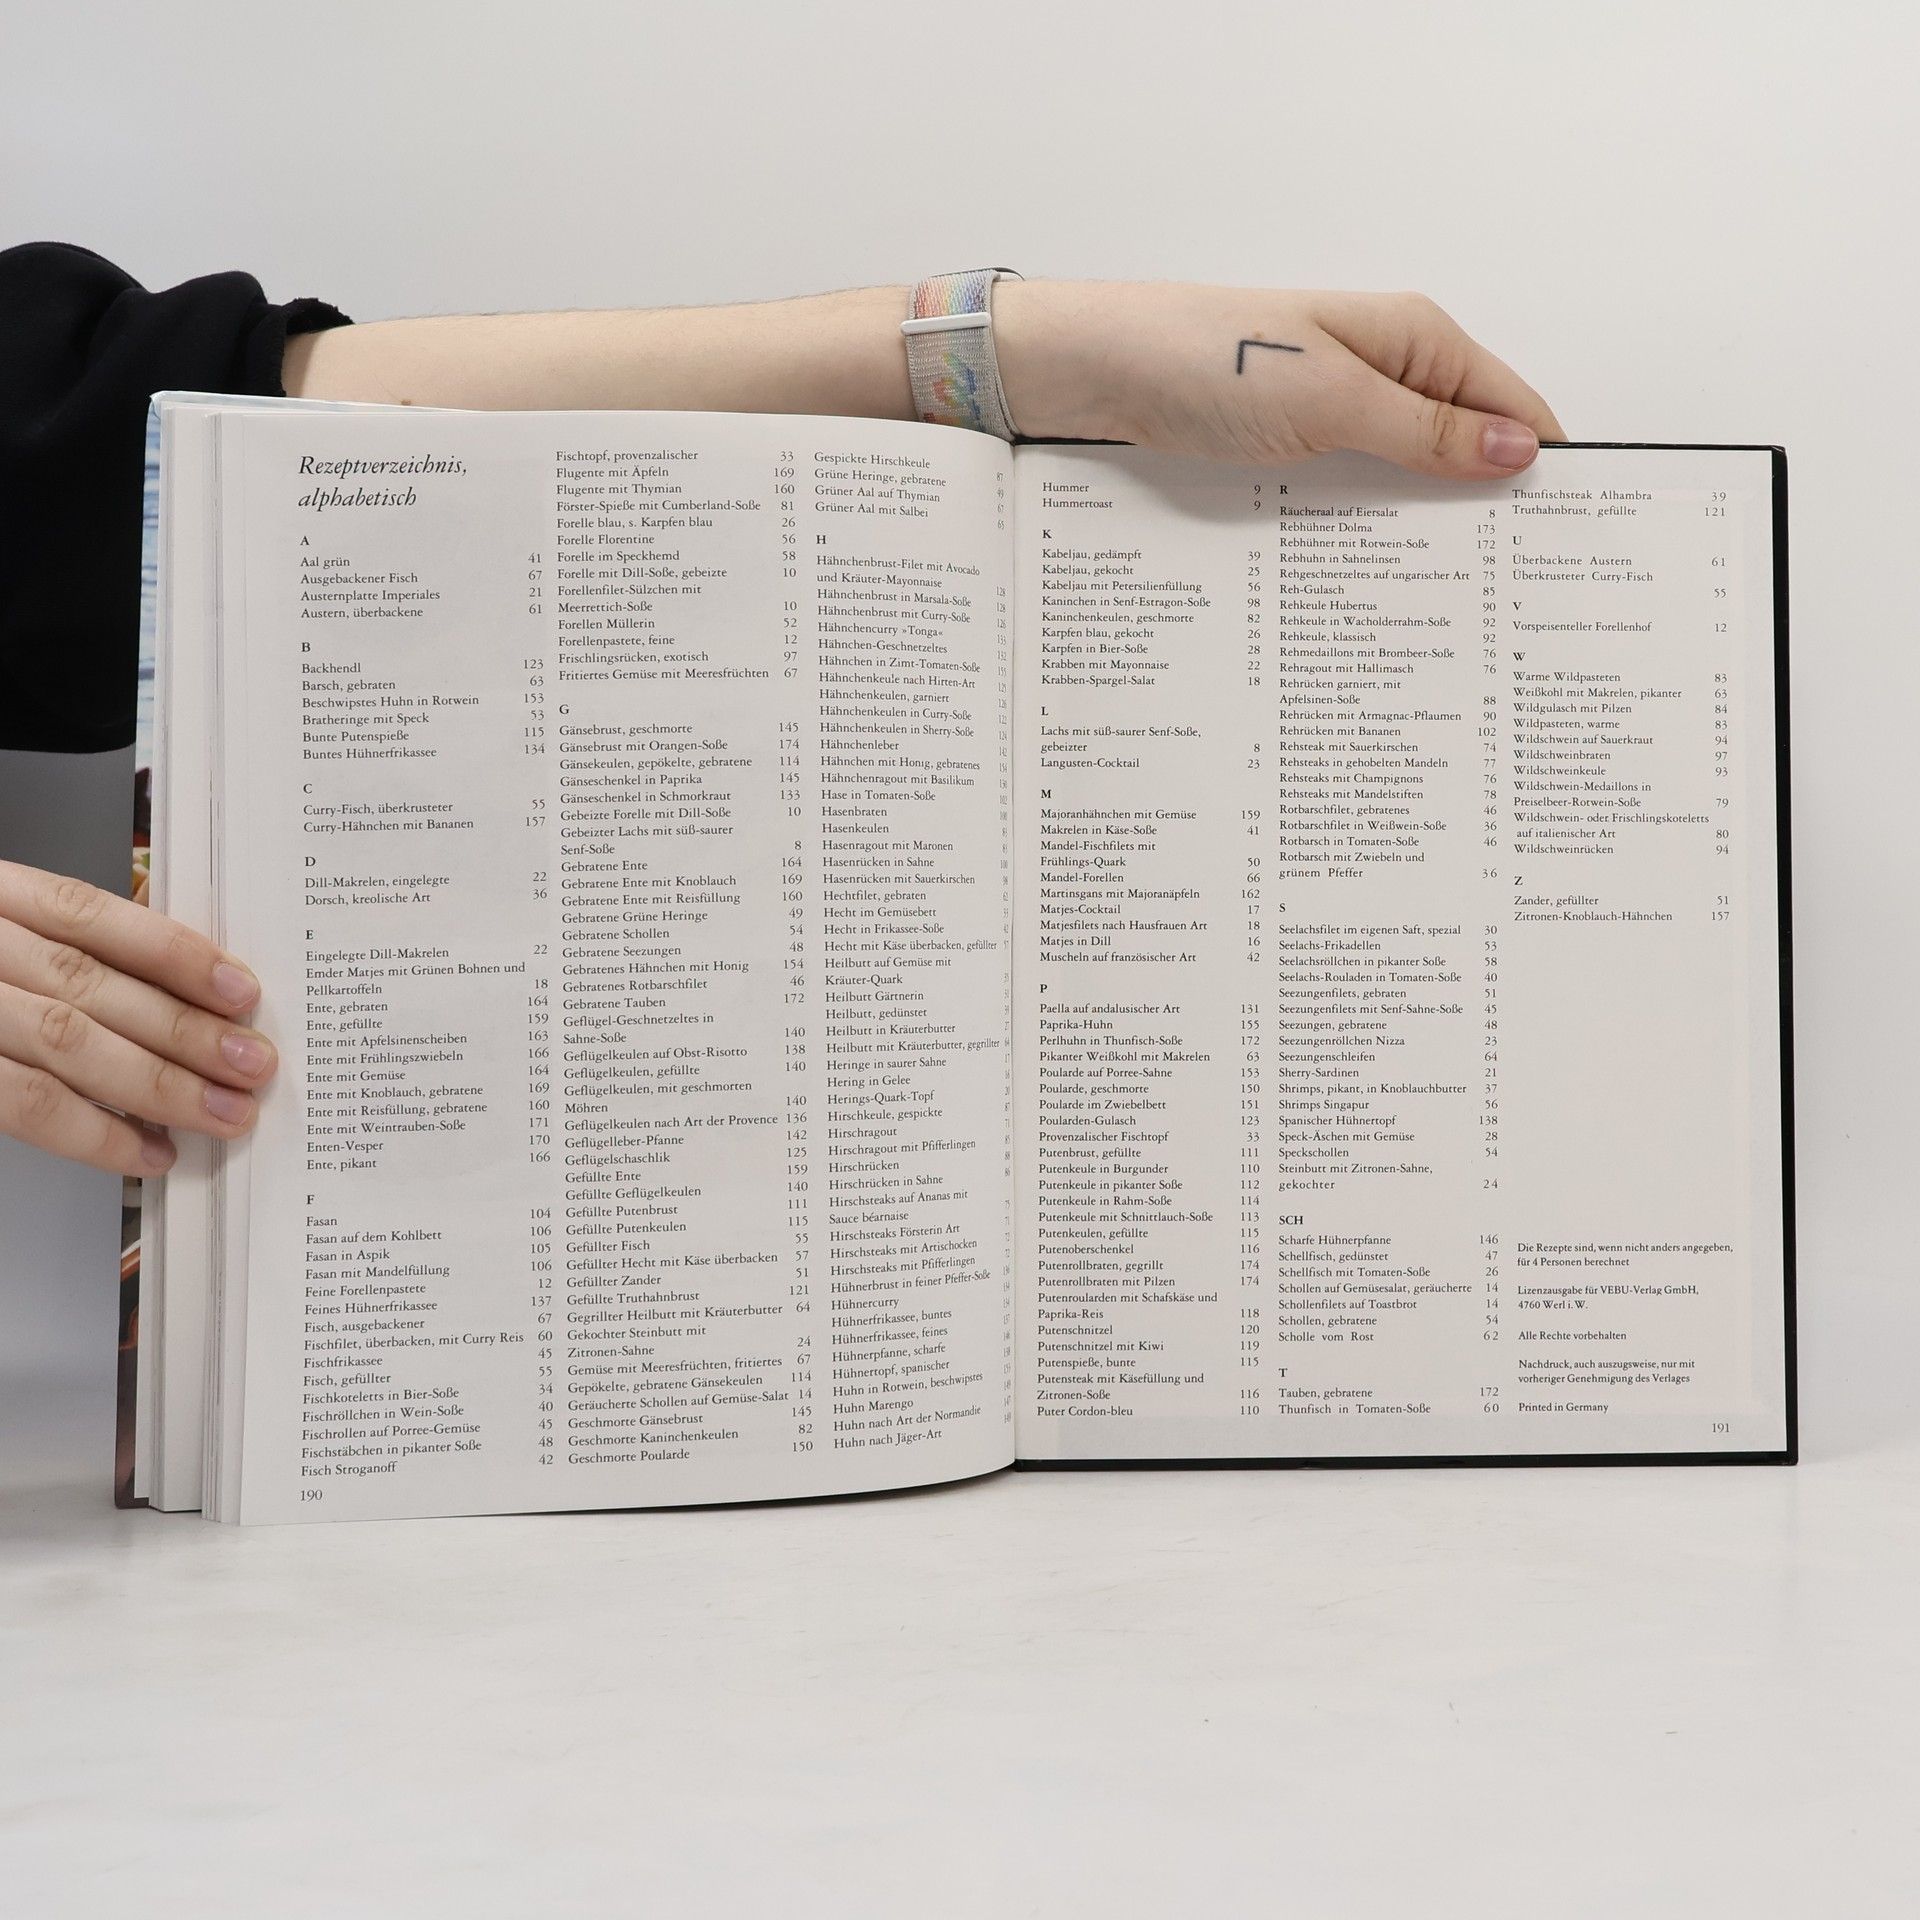 Rezeptverzeichnis,
alphabetisch
A
Aal grün 41
Ausgebackener Fisch 67
Austernplatte Imperiales 21
Austern, überbackene 61
B
Backhendl 123
Barsch, gebraten 63
Beschwipstes Huhn in Rotwein 153
Bratheringe mit Speck 53
Bunte Putenspieße 115
Buntes Hühnerfrikassee 134
C
Curry-Fisch, überkrusteter 55
Curry-Hähnchen mit Bananen 157
D
Dill-Makrelen, eingelegte 22
Dorsch, kreolische Art 36
E
Eingelegte Dill-Makrelen 22
Emder Matjes mit Grünen Bohnen und
Pellkartoffeln 18
Ente, gebraten 164
Ente, gefüllte 159
Ente mit Apfelsinenscheiben 163
Ente mit Frühlingszwiebeln 166
Ente mit Gemüse 164
Ente mit Knoblauch, gebratene 169
Ente mit Reisfüllung, gebratene 160
Ente mit Weintrauben-Soße 171
Enten-Vesper 170
Ente, pikant 166
F
Fasan 104
Fasan auf dem Kohlbett 106
Fasan in Aspik 105
Fasan mit Mandelfüllung 106
Feine Forellenpastete 12
Feines Hühnerfrikassee 137
Fisch, ausgebackener 67
Fischfilet, überbacken, mit Curry Reis 60
Fischfrikassee 45
Fisch, gefüllter 55
Fischkoteletts in Bier-Soße 34
Fischröllchen in Wein-Soße 40
Fischrollen auf Porree-Gemüse 45
Fischstäbchen in pikanter Soße 48
Fisch Stroganoff 42
190
Fischtopf, provenzalischer 33
Flugente mit Äpfeln 169
Flugente mit Thymian 160
Förster-Spieße mit Cumberland-Soße 81
Forelle blau, s. Karpfen blau 26
Forelle Florentine 56
Forelle im Speckhemd 58
Forelle mit Dill-Soße, gebeizte 10
Forellenfilet-Sülzchen mit
Meerrettich-Soße 10
Forellen Müllerin 52
Forellenpastete, feine 12
Frischlingsrücken, exotisch 97
Fritiertes Gemüse mit Meeresfrüchten 67
G
Gänsebrust, geschmorte 145
Gänsebrust mit Orangen-Soße 174
Gänsekeulen, gepökelte, gebratene 114
Gänseschenkel in Paprika 145
Gänseschenkel in Schmorkraut 133
Gebeizte Forelle mit Dill-Soße 10
Gebeizter Lachs mit süß-saurer
Senf-Soße 8
Gebratene Ente 164
Gebratene Ente mit Knoblauch 169
Gebratene Ente mit Reisfüllung 160
Gebratene Grüne Heringe 49
Gebratene Schollen 54
Gebratene Seezungen 48
Gebratenes Hähnchen mit Honig 154
Gebratenes Rotbarschfilet 46
Gebratene Tauben 172
Geflügel-Geschnetzeltes in
Sahne-Soße 140
Geflügelkeulen auf Obst-Risotto 138
Geflügelkeulen, gefüllte 140
Geflügelkeulen, mit geschmorten
Möhren 140
Geflügelkeulen nach Art der Provence 136
Geflügelleber-Pfanne 142
Geflügelschaschlik 125
Gefüllte Ente 159
Gefüllte Geflügelkeulen 140
Gefüllte Putenbrust 111
Gefüllte Putenkeulen 115
Gefüllter Fisch 55
Gefüllter Hecht mit Käse überbacken 57
Gefüllter Zander 51
Gefüllte Truthahnbrust 121
Gegrillter Heilbutt mit Kräuterbutter 64
Gekochter Steinbutt mit
Zitronen-Sahne 24
Gemüse mit Meeresfrüchten, fritiertes 67
Gepökelte, gebratene Gänsekeulen 114
Geräucherte Schollen auf Gemüse-Salat 14
Geschmorte Gänsebrust 145
Geschmorte Kaninchenkeulen 82
Geschmorte Poularde 150
Gespickte Hirschkeule 87
Grüne Heringe, gebratene 49
Grüner Aal auf Thymian 67
Grüner Aal mit Salbei 65
H
Hähnchenbrust-Filet mit Avocado
und Kräuter-Mayonnaise
Hähnchenbrust in Marsala-Soße
Hähnchenbrust mit Curry-Soße
Hähnchencurry »Tonga«
Hähnchen-Geschnetzeltes
Hähnchen in Zimt-Tomaten-Soße
Hähnchenkeule nach Hirten-Art
Hähnchenkeulen, garniert
Hähnchenkeulen in Curry-Soße
Hähnchenkeulen in Sherry-Soße
Hähnchenleber
Hähnchen mit Honig, gebratenes
Hähnchenragout mit Basilikum
Hase in Tomaten-Soße
Hasenbraten
Hasenkeulen
Hasenragout mit Maronen
Hasenrücken in Sahne
Hasenrücken mit Sauerkirschen
Hechtfilet, gebraten
Hecht im Gemüsebett
Hecht in Frikassee-Soße
Hecht mit Käse überbacken, gefüllter
Heilbutt auf Gemüse mit
Kräuter-Quark
Heilbutt Gärtnerin
Heilbutt, gedünstet
Heilbutt in Kräuterbutter
Heilbutt mit Kräuterbutter, gegrillter
Heringe in saurer Sahne
Hering in Gelee
Herings-Quark-Topf
Hirschkeule, gespickte
Hirschragout
Hirschragout mit Pfifferlingen
Hirschrücken
Hirschrücken in Sahne
Hirschsteaks auf Ananas mit
Sauce béarnaise
Hirschsteaks Försterin Art
Hirschsteaks mit Artischocken
Hirschsteaks mit Pfifferlingen
Hühnerbrust in feiner Pfeffer-Soße
Hühnercurry
Hühnerfrikassee, buntes
Hühnerfrikassee, feines
Hühnerpfanne, scharfe
Hühnertopf, spanischer
Huhn in Rotwein, beschwipstes
Huhn Marengo
Huhn nach Art der Normandie
Huhn nach Jäger-Art
Hummer 9
Hummertoast 9
K
Kabeljau, gedämpft 39
Kabeljau, gekocht 25
Kabeljau mit Petersilienfüllung 56
Kaninchen in Senf-Estragon-Soße 98
Kaninchenkeulen, geschmorte 82
Karpfen blau, gekocht 26
Karpfen in Bier-Soße 28
Krabben mit Mayonnaise 22
Krabben-Spargel-Salat 18
L
Lachs mit süß-saurer Senf-Soße,
gebeizter 8
Langusten-Cocktail 23
M
Majoranhähnchen mit Gemüse 159
Makrelen in Käse-Soße 41
Mandel-Fischfilets mit
Frühlings-Quark 50
Mandel-Forellen 66
Martinsgans mit Majoranäpfeln 162
Matjes-Cocktail 17
Matjesfilets nach Hausfrauen Art 18
Matjes in Dill 16
Muscheln auf französischer Art 42
P
Paella auf andalusischer Art 131
Paprika-Huhn 155
Perlhuhn in Thunfisch-Soße 172
Pikanter Weißkohl mit Makrelen 63
Poularde auf Porree-Sahne 153
Poularde, geschmorte 150
Poularde im Zwiebelbett 151
Poularden-Gulasch 123
Provenzalischer Fischtopf 33
Putenbrust, gefüllte 111
Putenkeule in Burgunder 110
Putenkeule in pikanter Soße 112
Putenkeule in Rahm-Soße 114
Putenkeule mit Schnittlauch-Soße 113
Putenkeulen, gefüllte 115
Putenoberschenkel 116
Putenrollbraten, gegrillt 174
Putenrollbraten mit Pilzen 174
Putenrouladen mit Schafskäse und
Paprika-Reis 118
Putenschnitzel 120
Putenschnitzel mit Kiwi 119
Putenspieße, bunte 115
Putensteak mit Käsefüllung und
Zitronen-Soße 116
Puter Cordon-bleu 110
R
Räucheraal auf Eiersalat 8
Rebhühner Dolma 173
Rebhühner mit Rotwein-Soße 172
Rebhuhn in Sahnelinsen 98
Rehgeschnetzeltes auf ungarischer Art 75
Reh-Gulasch 85
Rehkeule Hubertus 90
Rehkeule in Wacholderrahm-Soße 92
Rehkeule, klassisch 92
Rehmedaillons mit Brombeer-Soße 76
Rehragout mit Hallimasch 76
Rehrücken garniert, mit
Apfelsinen-Soße 88
Rehrücken mit Armagnac-Pflaumen 90
Rehrücken mit Bananen 102
Rehsteak mit Sauerkirschen 74
Rehsteaks in gehobelten Mandeln 77
Rehsteaks mit Champignons 76
Rehsteaks mit Mandelstiften 78
Rotbarschfilet, gebratenes 46
Rotbarschfilet in Weißwein-Soße 36
Rotbarsch in Tomaten-Soße 46
Rotbarsch mit Zwiebeln und
grünem Pfeffer 36
S
Seelachsfilet im eigenen Saft, spezial 30
Seelachs-Frikadellen 53
Seelachsröllchen in pikanter Soße 58
Seelachs-Rouladen in Tomaten-Soße 40
Seezungenfilets, gebraten 51
Seezungenfilets mit Senf-Sahne-Soße 45
Seezungen, gebratene 48
Seezungenröllchen Nizza 23
Seezungenschleifen 64
Sherry-Sardinen 21
Shrimps, pikant, in Knoblauchbutter 37
Shrimps Singapur 56
Spanischer Hühnertopf 138
Speck-Äschen mit Gemüse 28
Speckschollen 54
Steinbutt mit Zitronen-Sahne,
gekochter 24
SCH
Scharfe Hühnerpfanne 146
Schellfisch, gedünstet 47
Schellfisch mit Tomaten-Soße 26
Schollen auf Gemüsesalat, geräucherte 14
Schollenfilets auf Toastbrot 14
Schollen, gebratene 54
Scholle vom Rost 62
T
Tauben, gebratene 172
Thunfisch in Tomaten-Soße 60
Thunfischsteak Alhambra 39
Truthahnbrust, gefüllte 121
U
Überbackene Austern 61
Überkrusteter Curry-Fisch
55
V
Vorspeisenteller Forellenhof 12
W
Warme Wildpasteten 83
Weißkohl mit Makrelen, pikanter 63
Wildgulasch mit Pilzen 84
Wildpasteten, warme 83
Wildschwein auf Sauerkraut 94
Wildschweinbraten 97
Wildschweinkeule 93
Wildschwein-Medaillons in
Preiselbeer-Rotwein-Soße 79
Wildschwein- oder Frischlingskoteletts
auf italienischer Art 80
Wildschweinrücken 94
Z
Zander, gefüllter 51
Zitronen-Knoblauch-Hähnchen 157
Die Rezepte sind, wenn nicht anders angegeben,
für 4 Personen berechnet
Lizenzausgabe für VEBU-Verlag GmbH,
4760 Werl i. W.
Alle Rechte vorbehalten
Nachdruck, auch auszugsweise, nur mit
vorheriger Genehmigung des Verlages
Printed in Germany
191